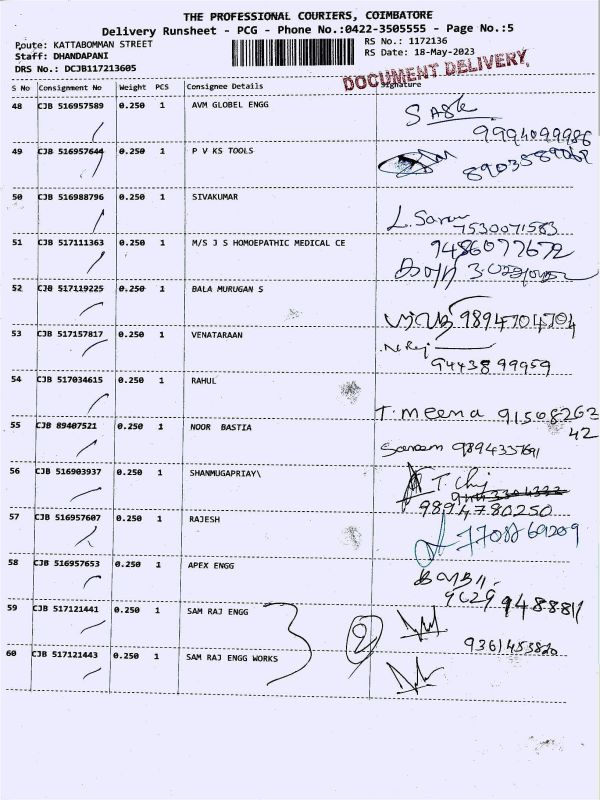 THE PROFESSIONAL COURIERS, COIMBATORE
Delivery Runsheet - PCG - Phone No.:0422-3505555 - Page No.:5
Route: KATTABOMMAN STREET
Staff: DHANDAPANI
DRS No.: DCJB117213605
RS No.: 1172136
RS Date: 18-May-2023
DOCUMENT DELIVERY
S No Consignment No Weight PCS Consignee Details Signature
48 CJB 516957589 0.250 1 AVM GLOBEL ENGG
9994099986
49 CJB 516957644 0.250 1 P V KS TOOLS
8903589068
50 CJB 516988796 0.250 1 SIVAKUMAR
7530071583
51 CJB 517111363 0.250 1 M/S J S HOMOEPATHIC MEDICAL CE 9486077672
52 CJB 517119225 0.250 1 BALA MURUGAN S
9894704704
53 CJB 517157817 0.250 1 VENATARAAN
9443899959
54 CJB 517034615 0.250 1 RAHUL
T. meena 91508262
42
55 CJB 89407521 0.250 1 NOOR BASTIA
56 CJB 516903937 0.250 1 SHANMUGAPRIAY\
9894780250
57 CJB 516957607 0.250 1 RAJESH
7708769209
58 CJB 516957653 0.250 1 APEX ENGG
9629948881
59 CJB 517121441 0.250 1 SAM RAJ ENGG
2
60 CJB 517121443 0.250 1 SAM RAJ ENGG WORKS